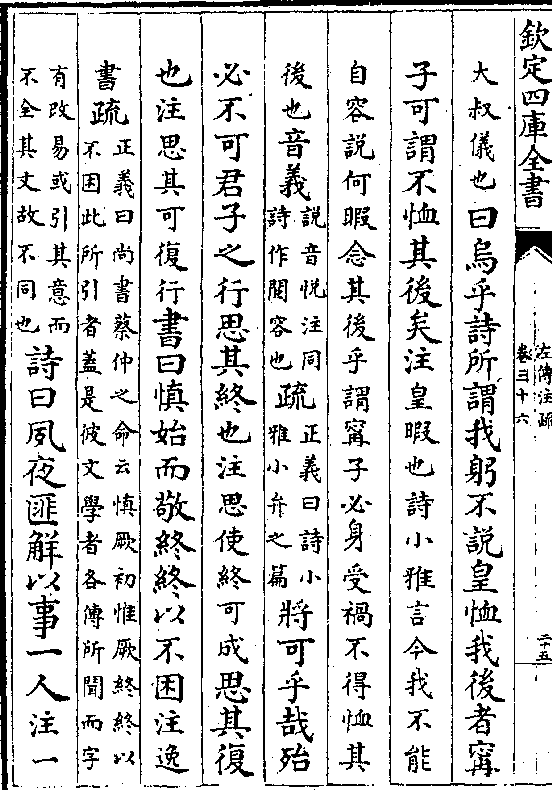 欽定四庫全書
左傳注疏
卷三十六
二十五
大叔儀也曰烏乎詩所謂我躬不說皇恤我後者甯
子可謂不恤其後矣注皇暇也詩小雅言今我不能
自容說何暇念其後乎謂甯子必身受禍不得恤其
後也音義說音悅注同
詩作閱容也疏正義曰詩小
雅小弁之篇將可乎哉殆
必不可君子之行思其終也注思使終可成思其復
也注思其可復行書曰慎始而敬終終以不困注逸
書疏正義曰尚書蔡仲之命云慎厥初惟厥終終以
不困此所引者蓋是彼文學者各傳所聞而字
有改易或引其意而
不全其文故不同也詩曰夙夜匪解以事一人注一